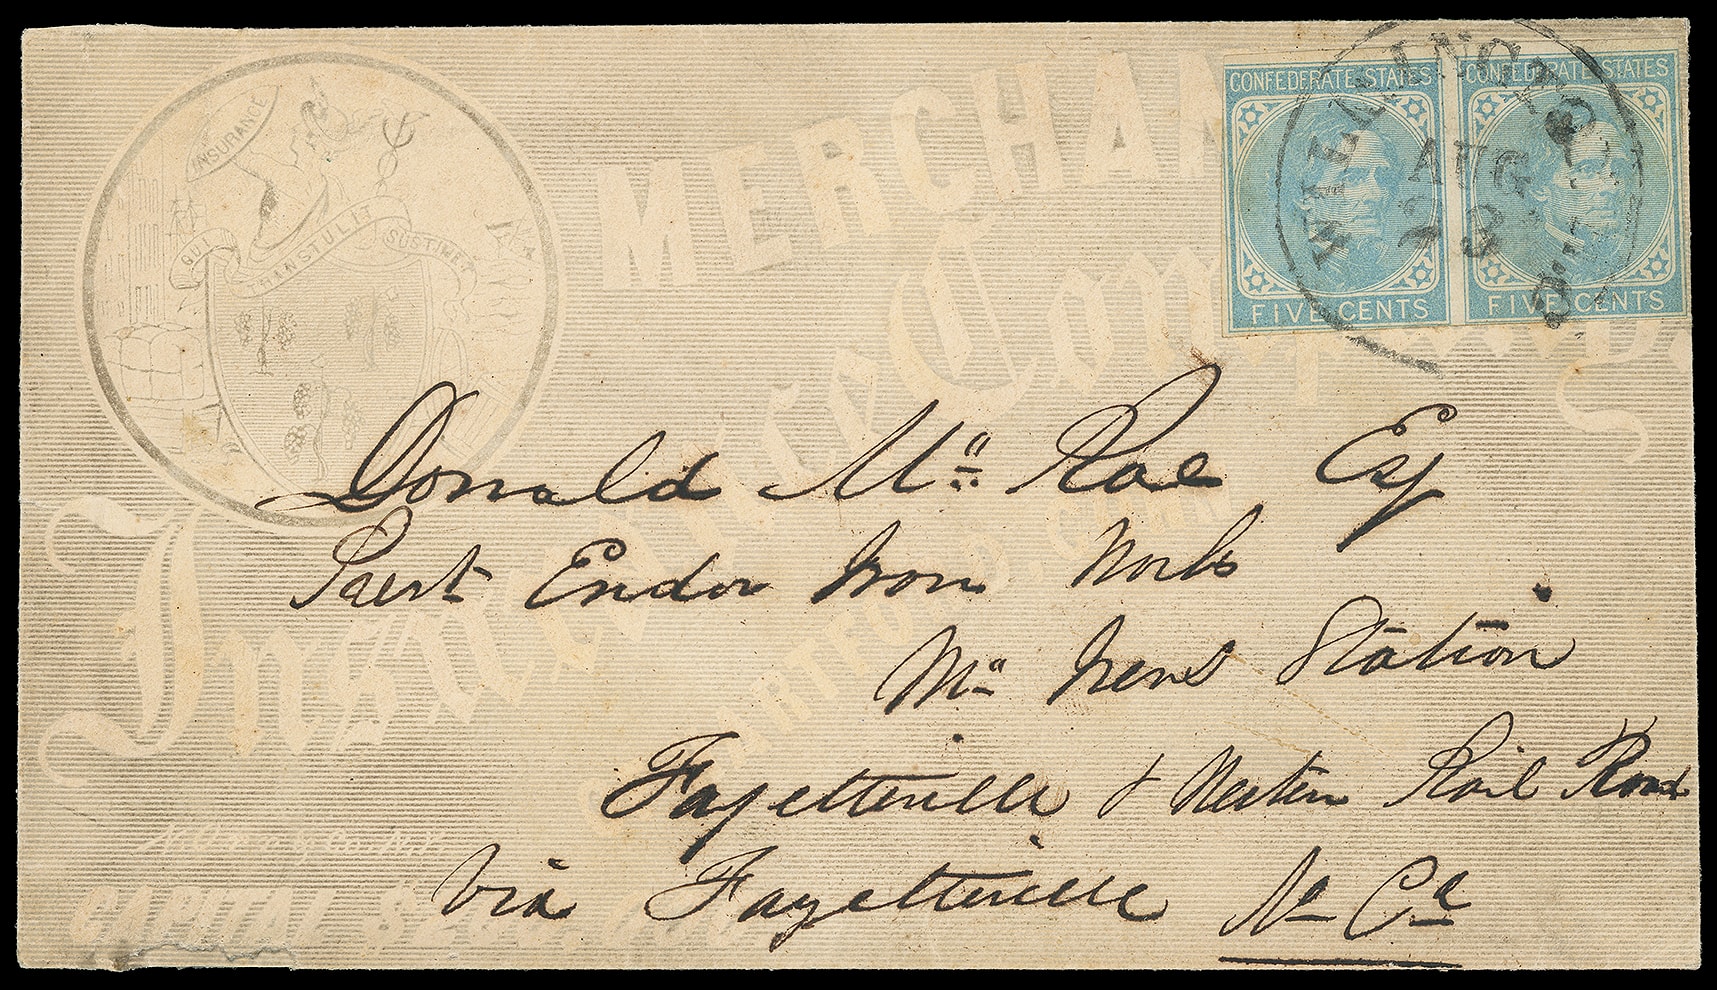 INSURANCE
QUI TRANSTULIT SUSTINET
MERCHAN
Insurance Company
HARTFORD, CONN
CAPITAL $200,000
CONFEDERATE STATES
FIVE CENTS
CONFEDERATE STATES
FIVE CENTS
WILMINGTON
AUG
Donald Mc Rae Esq
Prest Endor Iron Works
Mc Ivers Station
Fayetteville & Western Rail Road
via Fayetteville No Ca